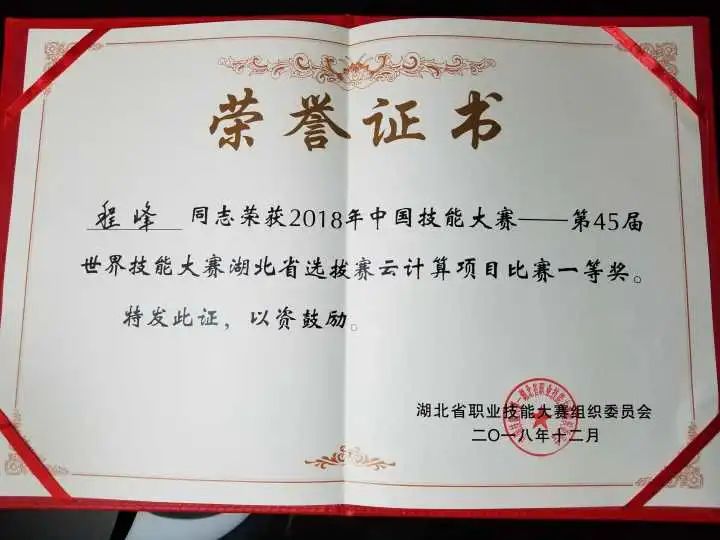 荣誉证书
程峰 同志荣获2018年中国技能大赛——第45届
世界技能大赛湖北省选拔赛云计算项目比赛一等奖。
特发此证，以资鼓励。
湖北省职业技能大赛组织委员会
二〇一八年十二月